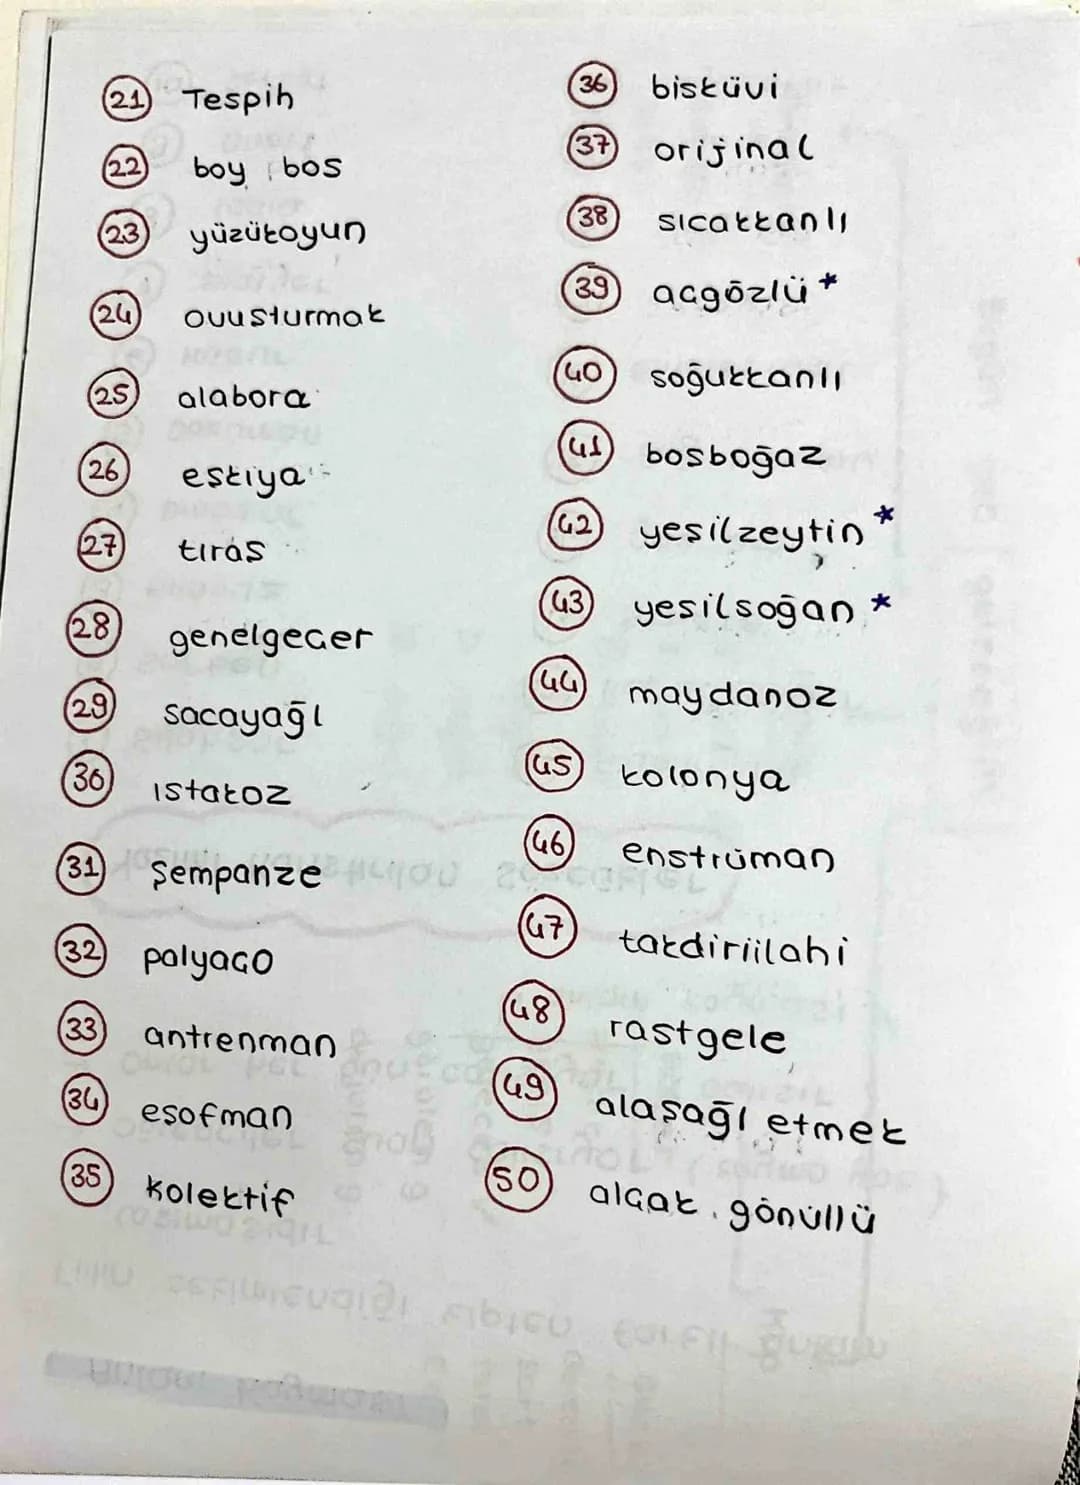 21 Tespih
22 boy bos
23 yüzükoyun
24 ovuşturmak
25 alabora
26 eşkıya
27 tıraş
28 genelgeçer
29 sacayağı
30 ıstakoz
31 şempanze
32 palyaço
33 antrenman
34 eşofman
35 kolektif
36 bisküvi
37 orijinal
38 sıcakkanlı
39 açgözlü *
40 soğukkanlı
41 boşboğaz
42 yeşilzeytin *
43 yeşilsoğan *
44 maydanoz
45 kolonya
46 enstrüman
47 takdiriilahi
48 rastgele
49 alaşağı etmek
50 alçak gönüllü